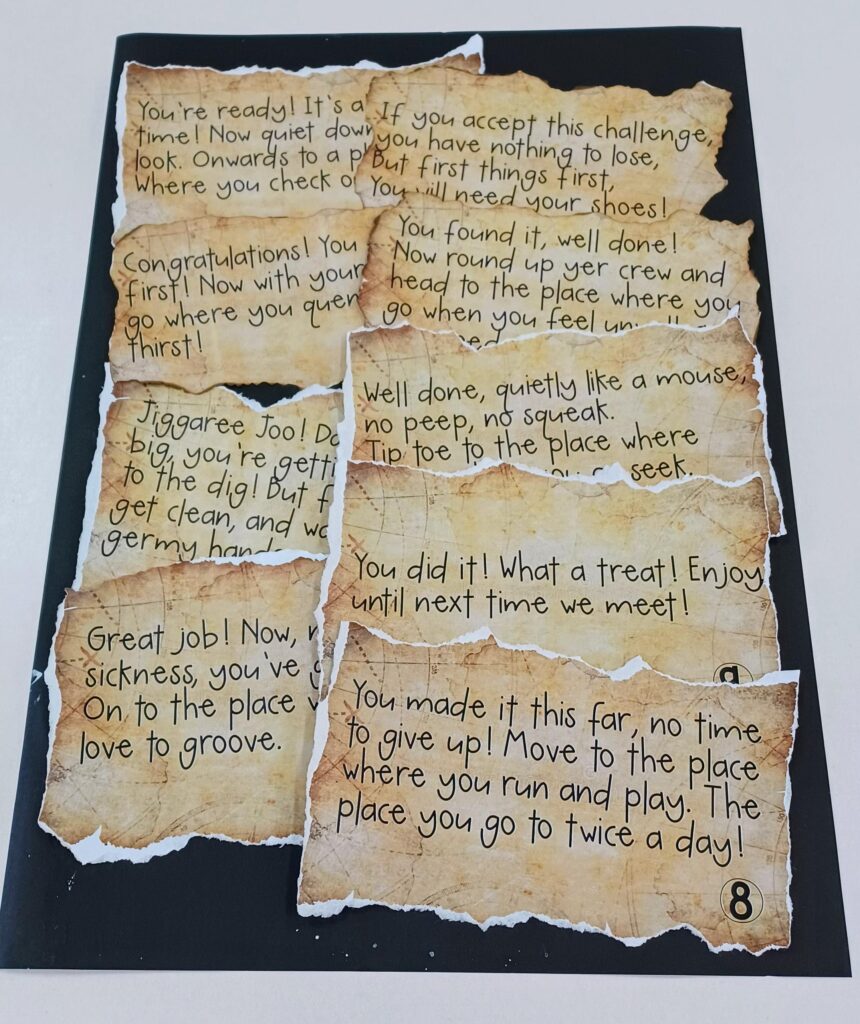 You're ready! It's a
time! Now quiet down
look. Onwards to a
Where you check
If you accept this challenge,
you have nothing to lose,
But first things first,
You will need your shoes!
Congratulations! You
first! Now with your
go where you
thirst!
You found it, well done!
Now round up yer crew and
head to the place where you
go when you feel
Jiggaree Joo!
big, you're
to the dig! But
get clean, and
germy
Well done, quietly like a mouse,
no peep, no squeak.
Tip toe to the place where
seek.
You did it! What a treat! Enjoy
until next time we meet!
9
Great job! Now,
sickness, you've
On to the place
love to groove.
You made it this far, no time
to give up! Move to the place
where you run and play. The
place you go to twice a day!
8